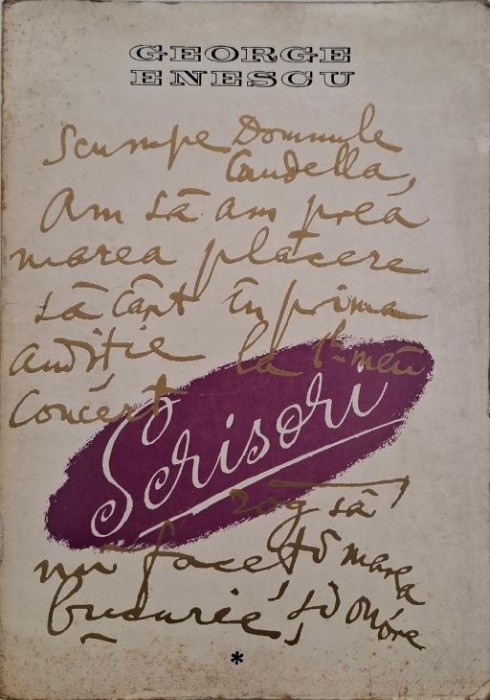 GEORGE
ENESCU
Scumpe Domnule
Caudella,
Am să am prea
marea plăcere
să cânt în prima
audiție la 1ul meu
Concert
Scrisori
rog să
mi faceți marea
bucurie, și onóre
*